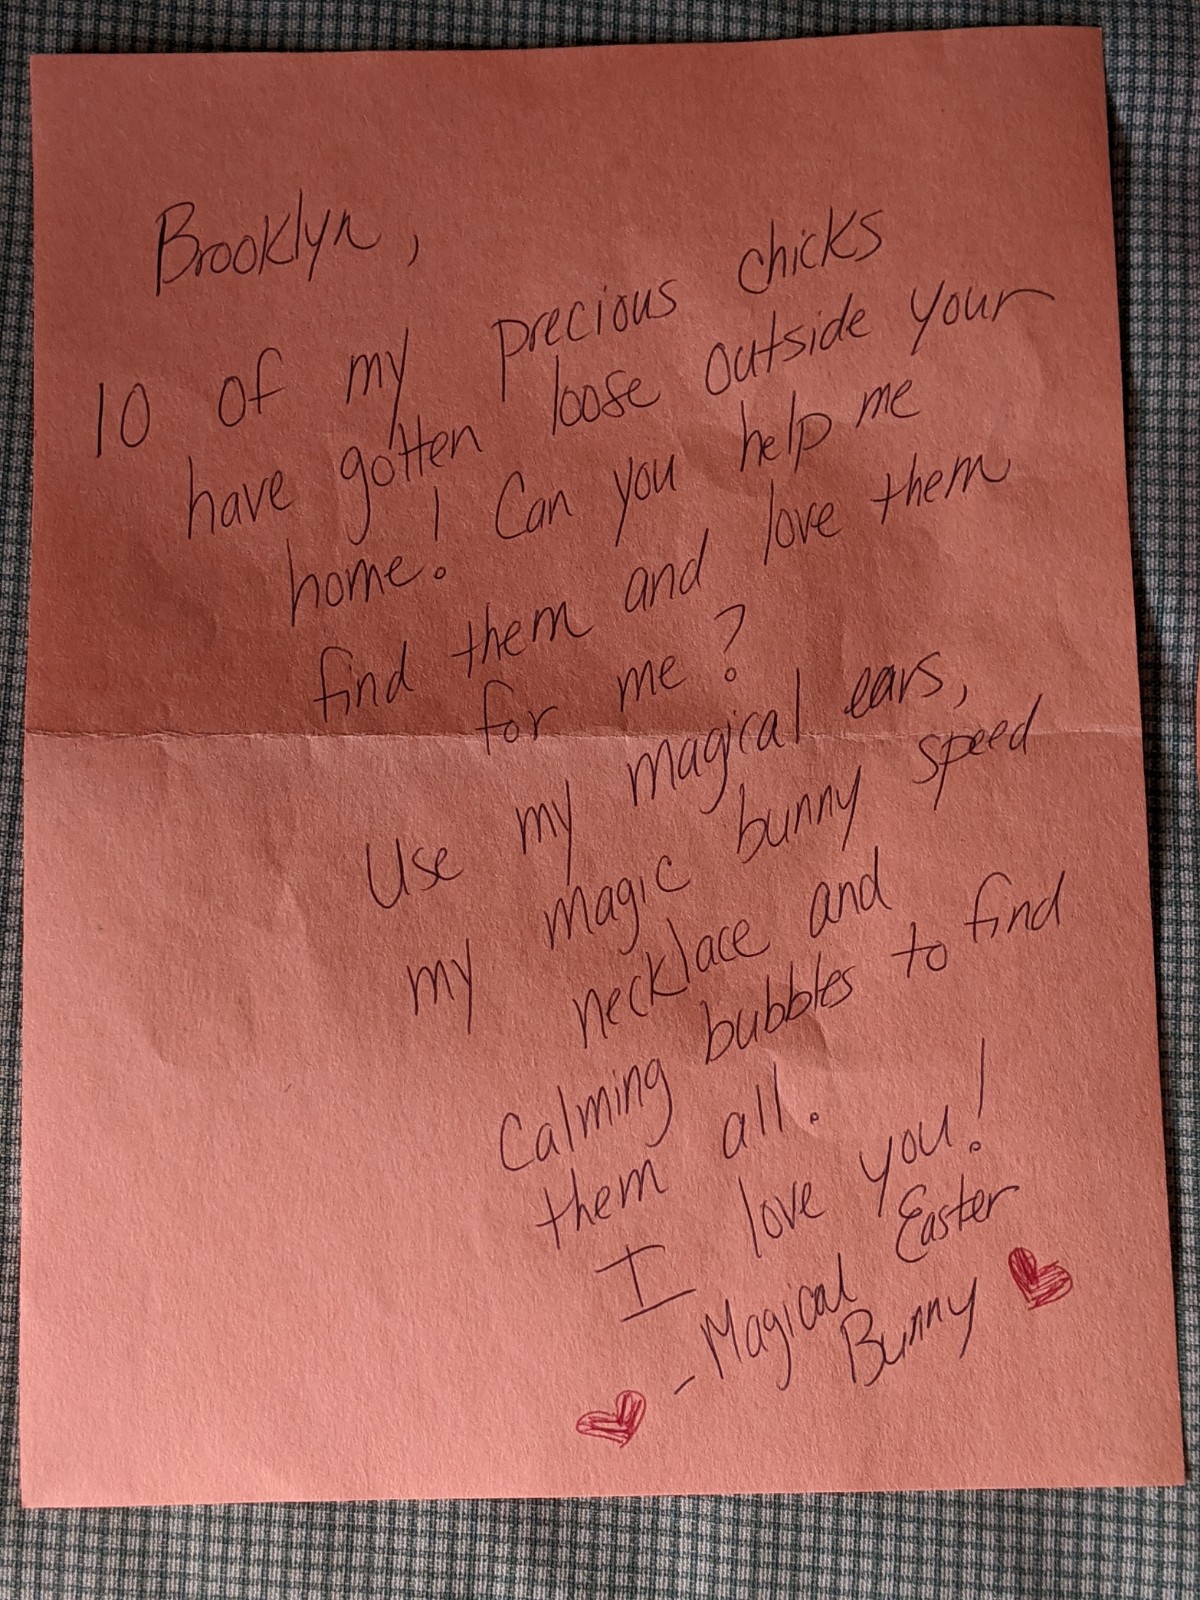 Brooklyn,
10 of my precious chicks
have gotten loose outside your
home! Can you help me
find them and love them
for me?
Use my magical ears,
my magic bunny speed
necklace and
Calming bubbles to find
them all.
I love you!
-Magical Easter
Bunny